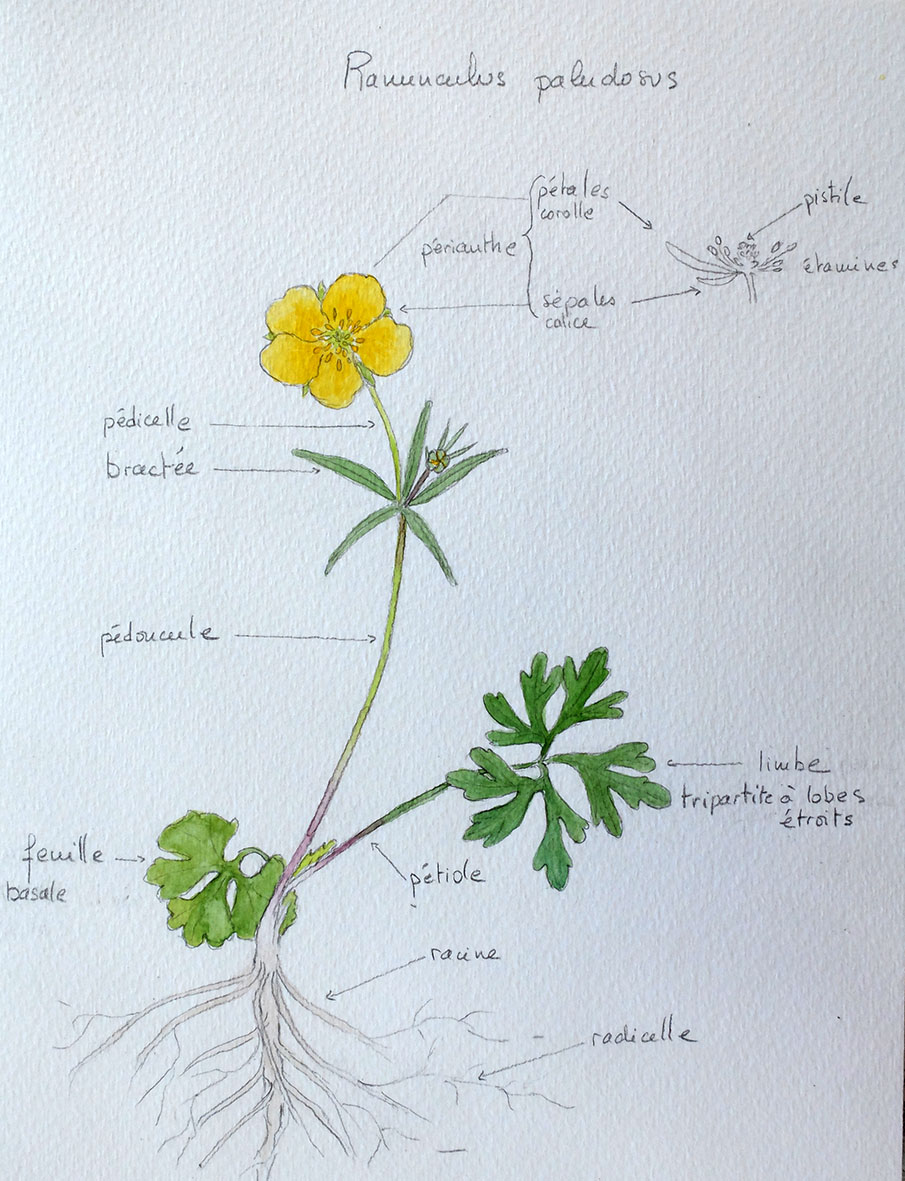 Ranunculus paludosus
pétales
corolle
périanthe
sépales
calice
pistile
étamines
pédicelle
bractée
pédoncule
limbe
tripartite à lobes
étroits
feuille
basale
pétiole
racine
radicelle